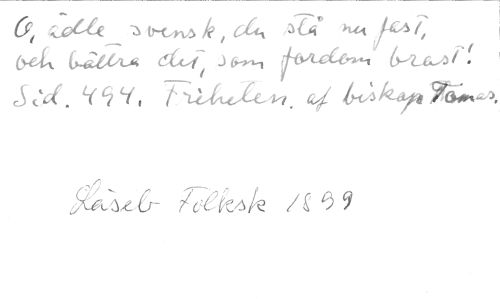 O, ädle svensk, du stå nu fast,
och bättra det, som fordom brast!
Sid. 494. Friheten. af biskop Tomas.
Läseb Folksk 1899